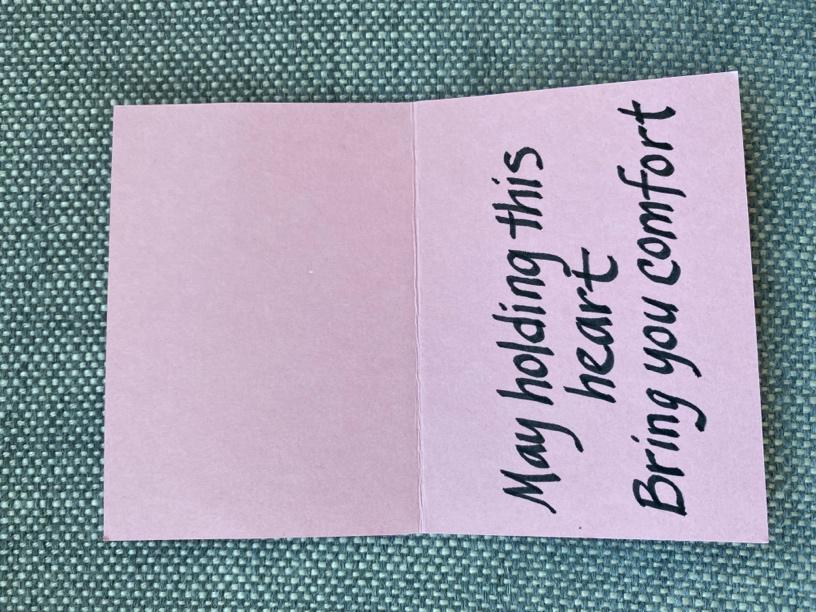 May holding this
heart
Bring you comfort